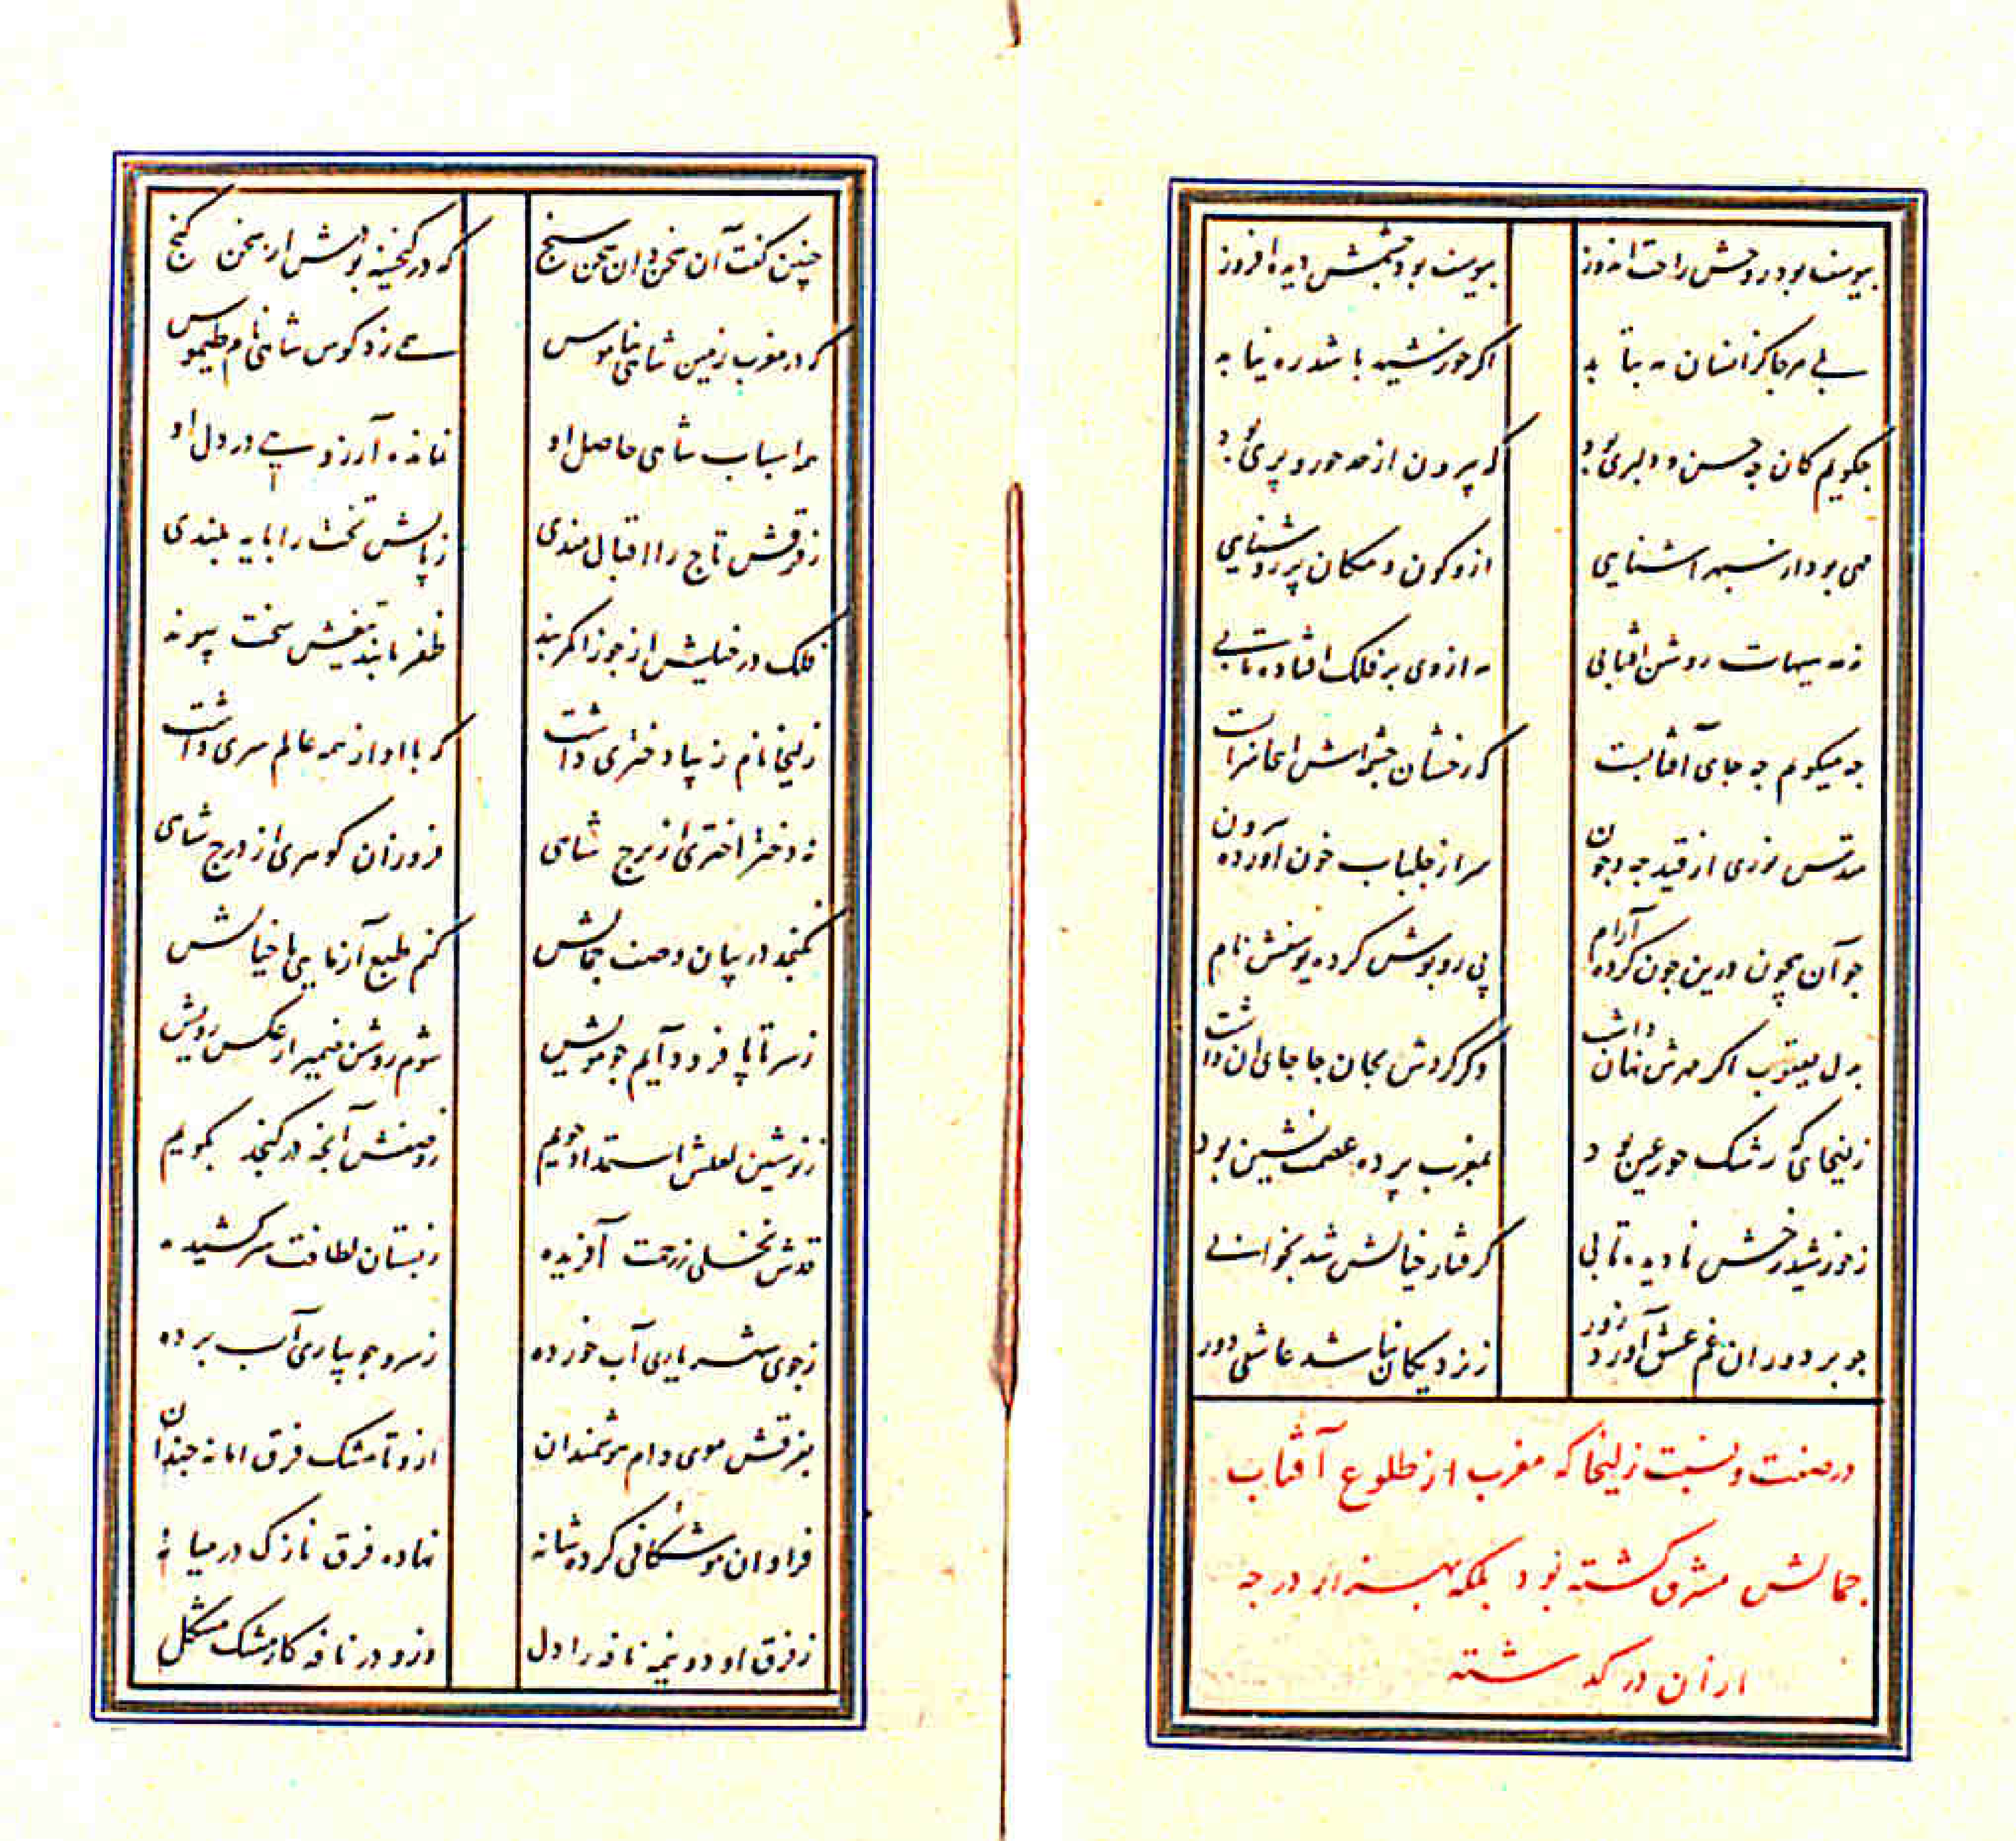 بیوسف بود روحش راحت اندوز
بیوسف بود چشمش دیده افروز
بلی هرجا کز انسان مه بتابد
اگر خورشید باشد ره نیابد
جکویم کان جه حسن و دلبری بود
که بیرون از حد حور و پری بود
مهی بود از سپهر اشنایی
ازو کون و مکان پر روشنایی
نه مه هیهات روشن افتابی
مه از وی بر فلک افتاده تابی
جه میکویم جه جای آفتابست
که رخشان چشمه اش انجا سرابست
مقدس نوری از قید جه و جون
سر از جلباب خون آورده بیرون
جو آن بیچون درین جون کرده آرام
پی روپوش کرده یوسفش نام
بدل یعقوب اکر مهرش نهان داشت
وکر کردش بجان جا جای ان داشت
زلیخایی که رشک حور عین بود
بمغرب پرده عصمت نشین بود
زخورشید رخش نادیده تابی
کرفتار خیالش شد بخوابی
جو بر دوران غم عشق آورد زور
ز نزدیکان نباشد عاشقی دور
در صفت و نسبت زلیخا که مغرب از طلوع آفتاب
جمالش مشرق کشته بود بلکه بهزار درجه
از ان در کدشته
چنین کفت آن سخن دان سخن سنج
که در کنجینه بودش از سخن کنج
که در مغرب زمین شاهی بناموس
همی زد کوس شاهی نام طیموس
همه اسباب شاهی حاصل او
نمانده آرزویی در دل او
ز فرقش تاج را اقبال مندی
ز پایش تخت را پایه بلندی
فلک در خیلش از جوزا کمر بند
ظفر با بند تیغش سخت پیوند
زلیخا نام زیبا دختری داشت
که با او از همه عالم سری داشت
نه دختر اختری از برج شاهی
فروزان کوهری از درج شاهی
نکنجد در بیان وصف جمالش
کنم طبع آزمایی با خیالش
ز سر تا پا فرود آیم جو مویش
شوم روشن ضمیر از عکس رویش
ز نوشین لعلش استمداد جویم
ز وصفش آنجه در کنجد بکویم
قدش نخلی ز رحمت آفریده
ز بستان لطافت سر کشیده
ز جوی شهریاری آب خورده
ز سرو جویباری آب برده
بفرقش موی دام هوشمندان
ازو تا مشک فرق اما نه جندان
فراوان موشکافی کرده شانه
نهاده فرق نازک در میانه
ز فرق او دو نیمه نافه را دل
وزو در نافه کار مشک مشکل